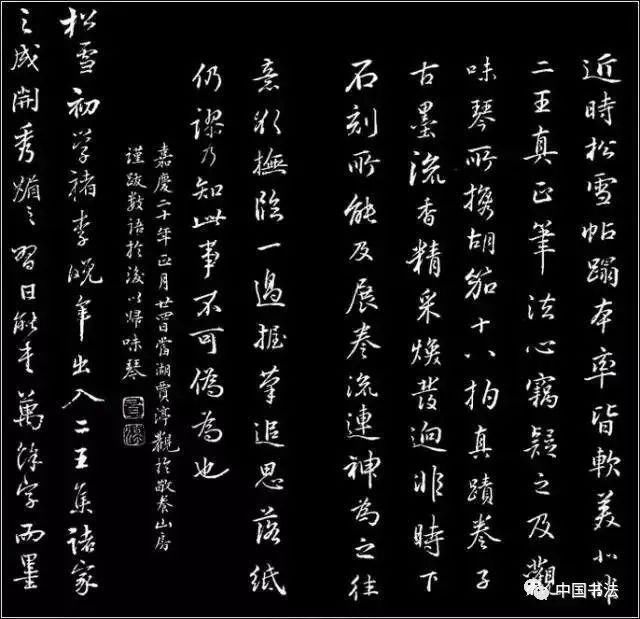 近時松雪帖蹋本率皆軟美
二王真正筆法心竊疑之及觀
味琴所攜胡笳十八拍真蹟卷子
古墨流香精采煥發迥非時下
石刻所能及展卷流連神為之往
意欲撫臨一過握筆追思落紙
仍謬乃知此事不可偽為也
嘉慶二十年正月廿四日當湖賈淳觀於山房
謹跋數語於後以歸味琴
松雪初學褚李晚年出入二王集諸家
之成開秀媚之習日能書萬餘字而墨
中国书法